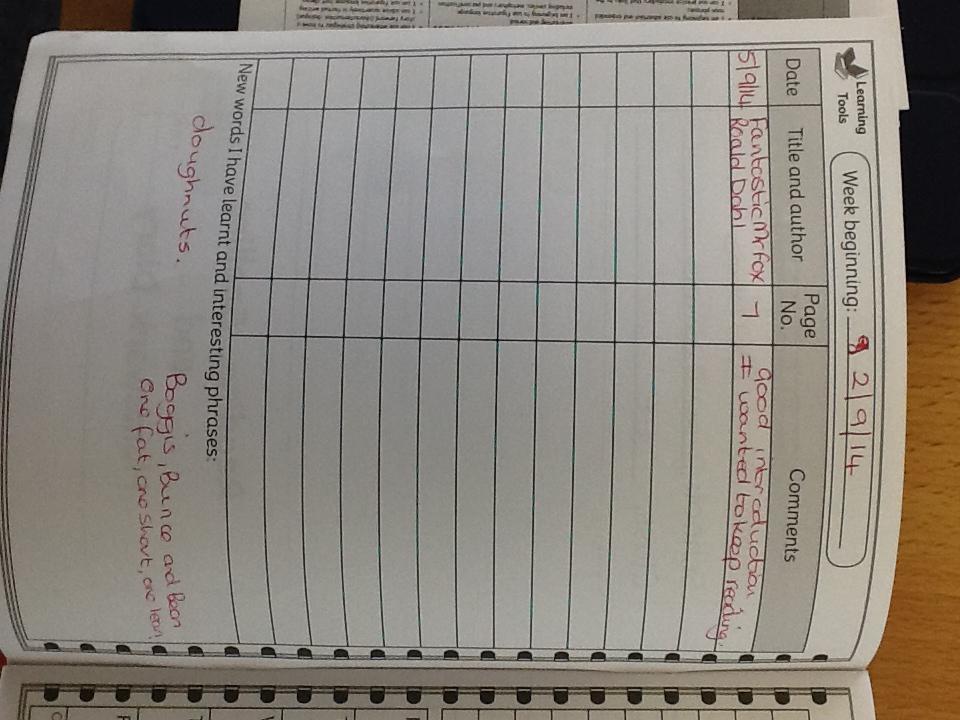 Learning
Tools
Week beginning: 2/9/14
Date
Title and author
Page
No.
Comments
5/9/14
Fantastic Mr Fox
Roald Dahl
7
good intoroduction
I wanted to keep reading.
New words I have learnt and interesting phrases:
doughnuts.
Boggis, Bunce and Bean
one fat, one short, one lean